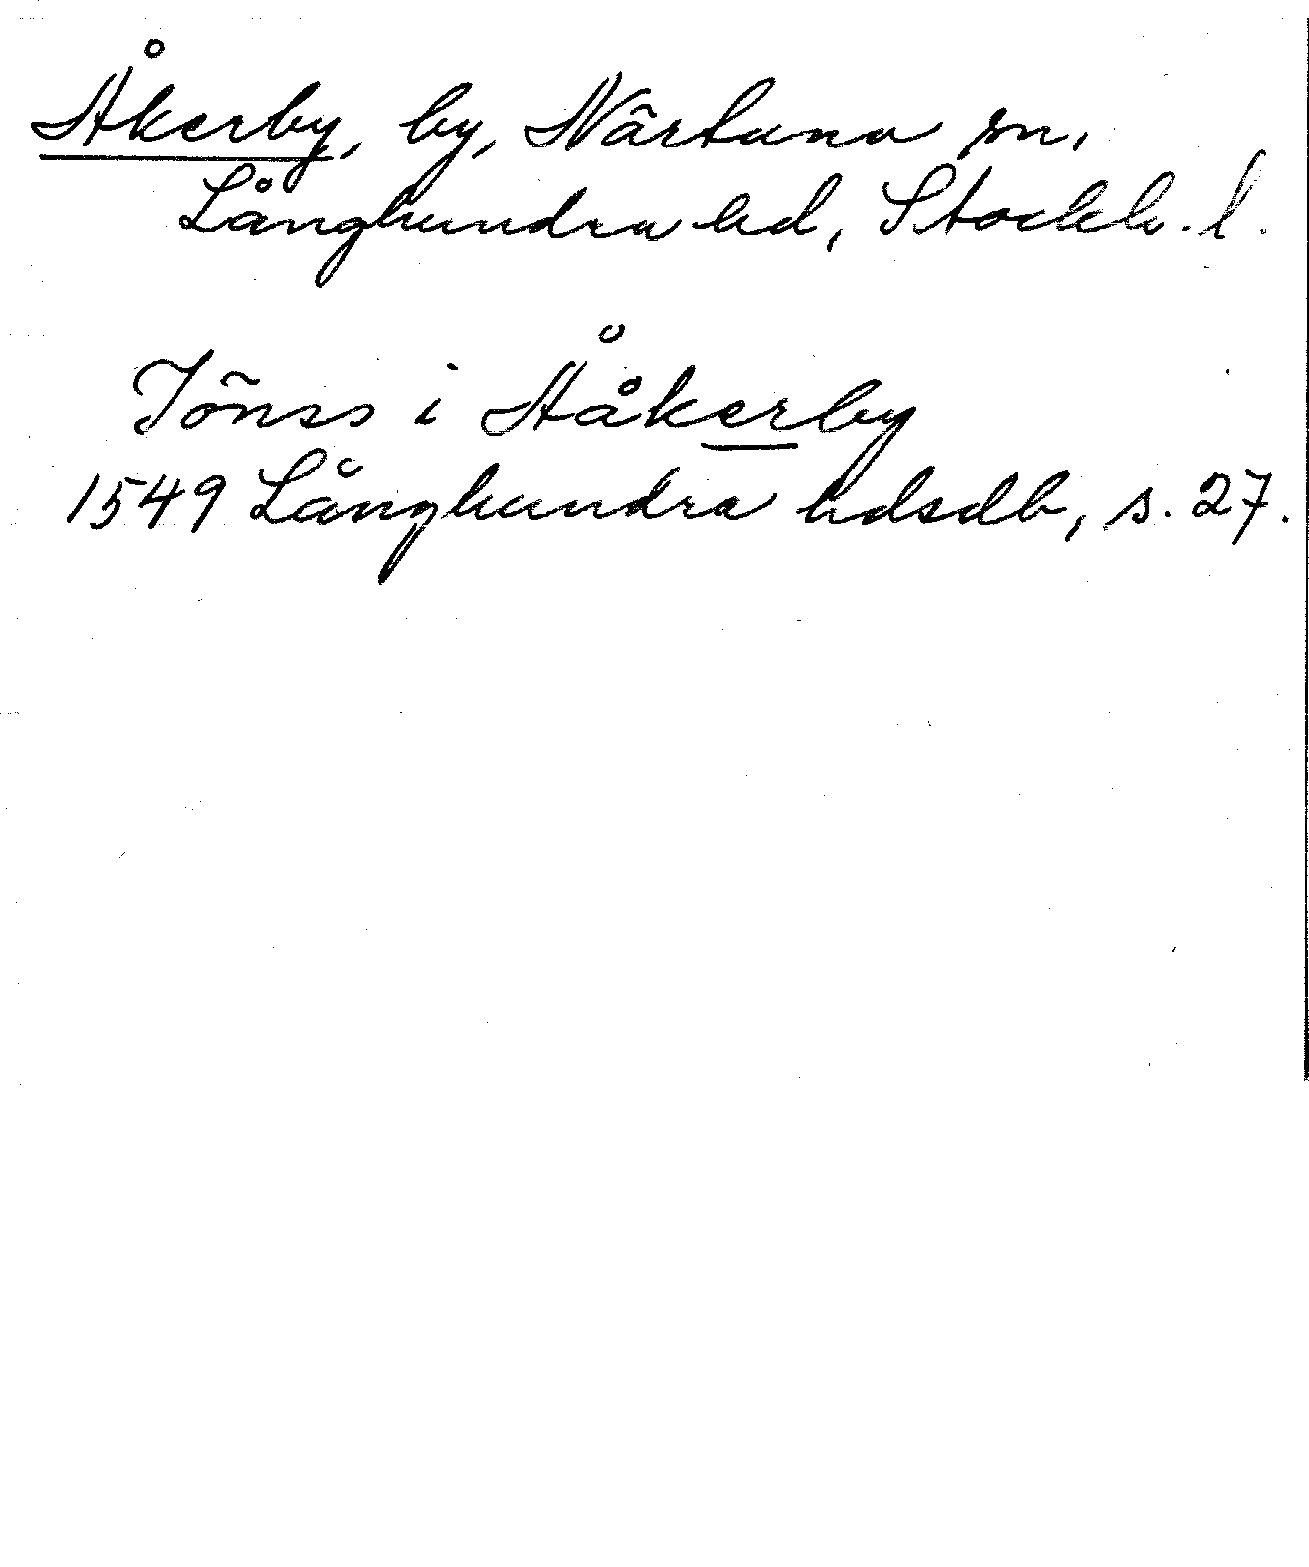 Åkerby, by, Närtuna sn,
Långhundra hd, Stockh. l.
Jönss i Ååkerby
1549 Långhundra hdsdb, s. 27.